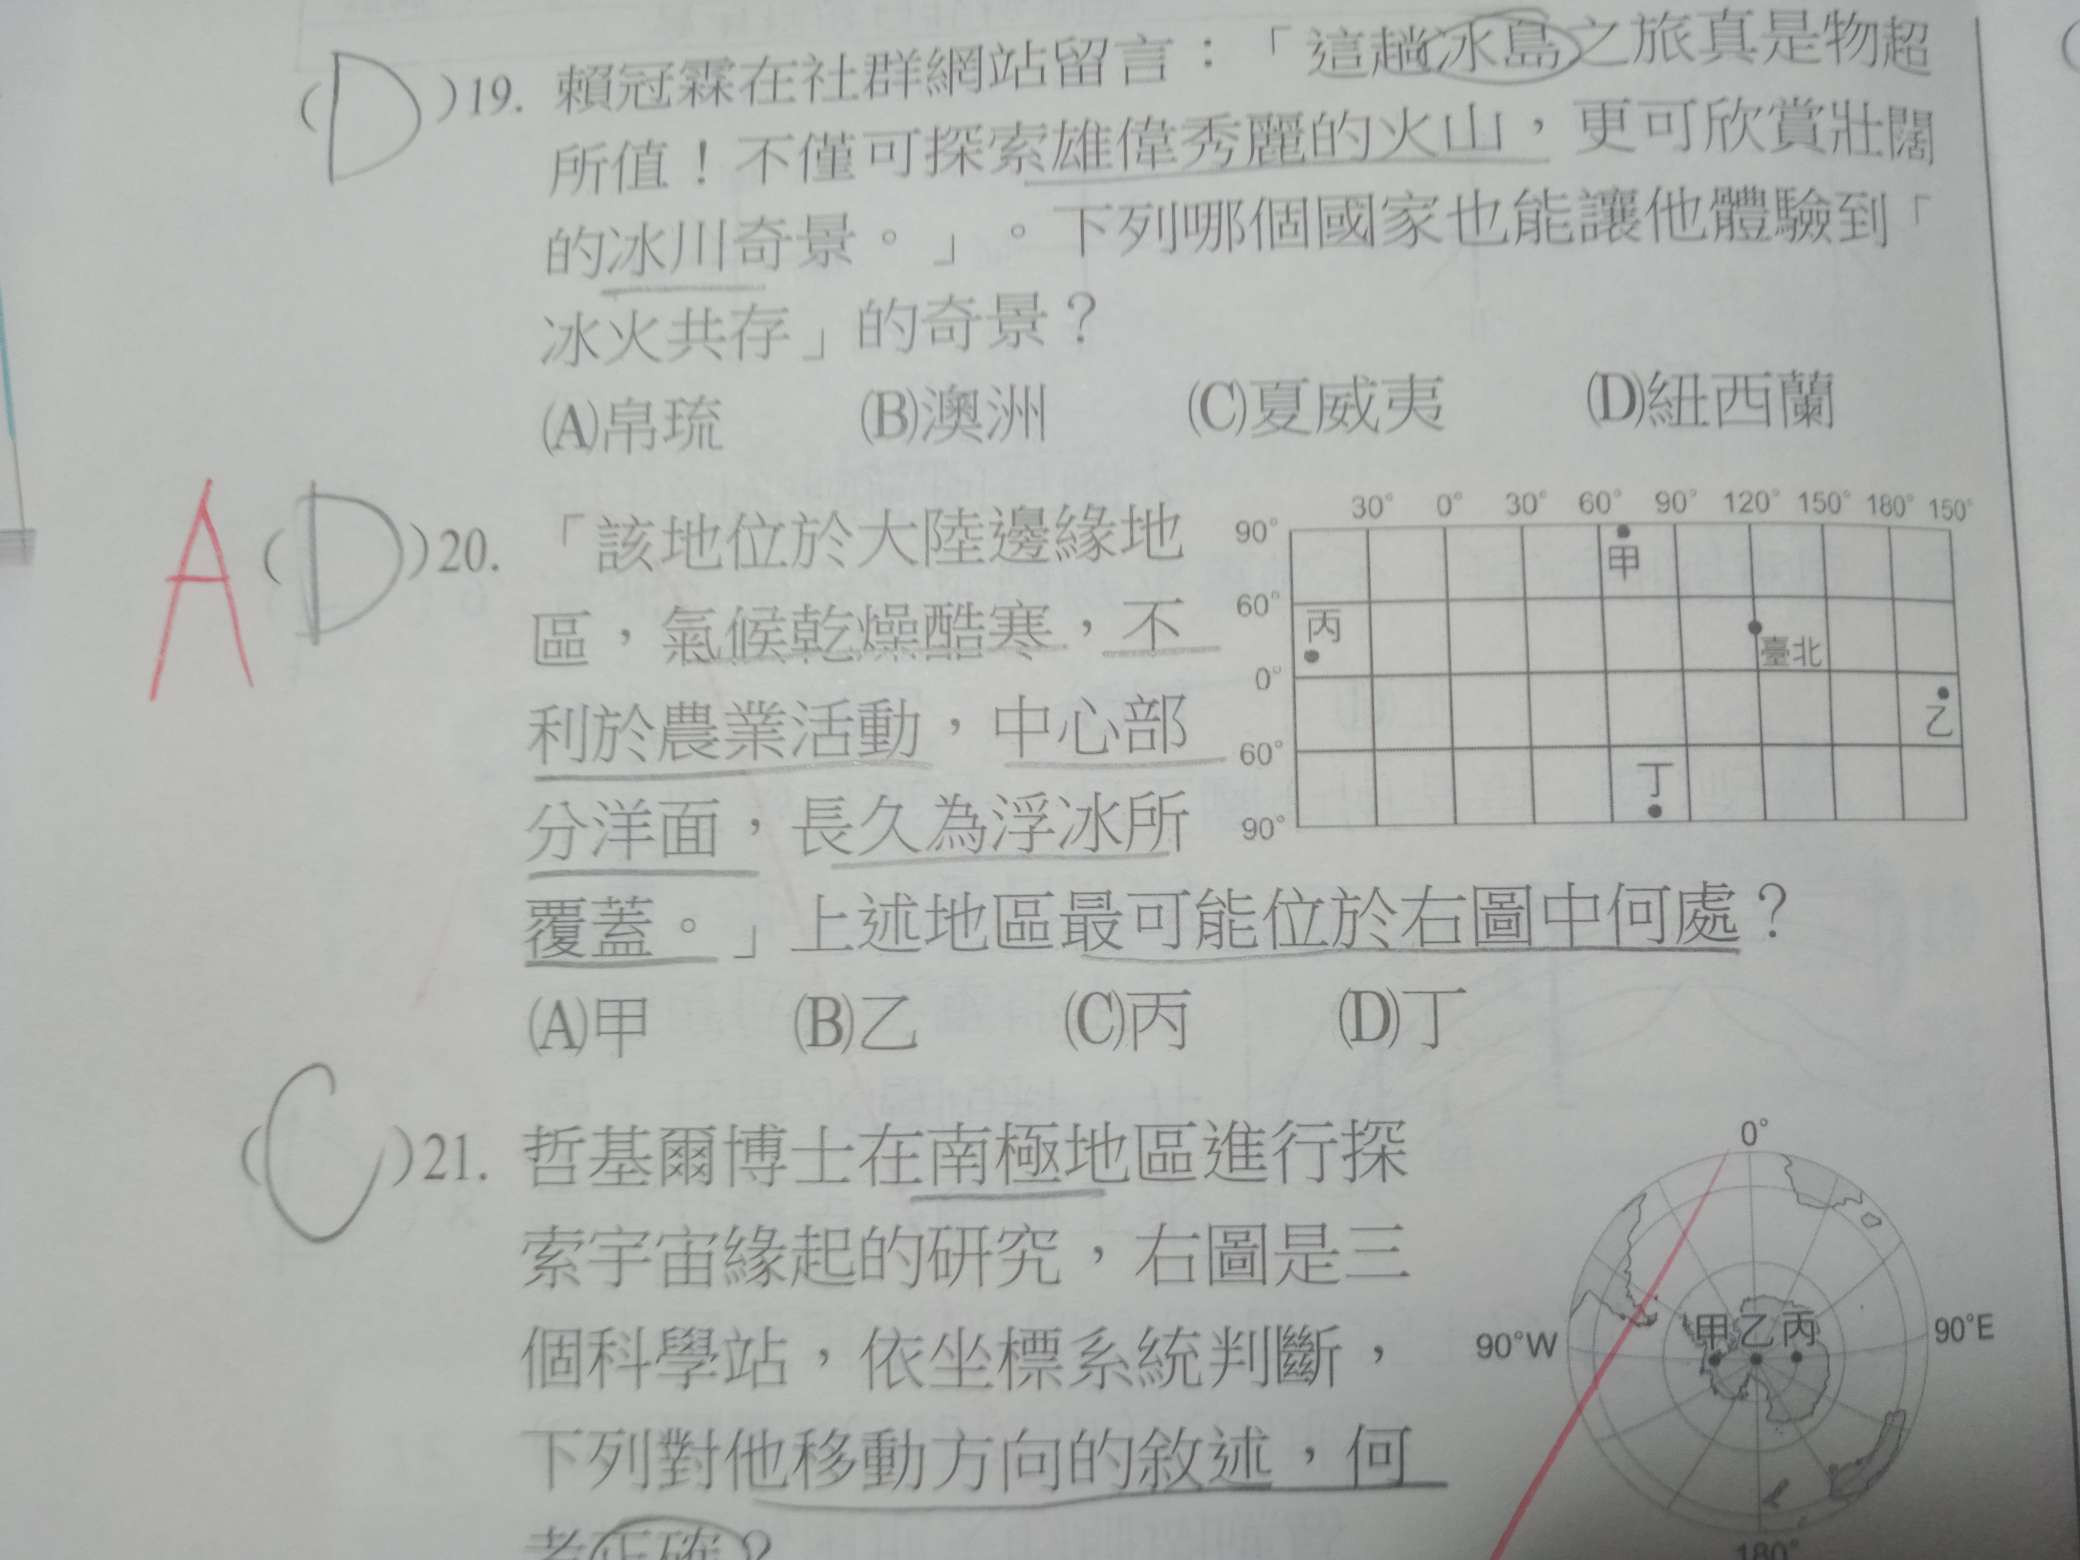 (D)19. 賴冠霖在社群網站留言：「這趟冰島之旅真是物超
所值！不僅可探索雄偉秀麗的火山，更可欣賞壯闊
的冰川奇景。」。下列哪個國家也能讓他體驗到「
冰火共存」的奇景？
(A)帛琉 (B)澳洲 (C)夏威夷 (D)紐西蘭
A (D)20. 「該地位於大陸邊緣地
區，氣候乾燥酷寒，不
利於農業活動，中心部
分洋面，長久為浮冰所
覆蓋。」上述地區最可能位於右圖中何處？
(A)甲 (B)乙 (C)丙 (D)丁
30° 0° 30° 60° 90° 120° 150° 180° 150°
90°
甲
60°
丙
臺北
0°
乙
60°
丁
90°
(C)21. 哲基爾博士在南極地區進行探
索宇宙緣起的研究，右圖是三
個科學站，依坐標系統判斷，
下列對他移動方向的敘述，何
者正確？
0°
90°W 甲乙丙 90°E
180°